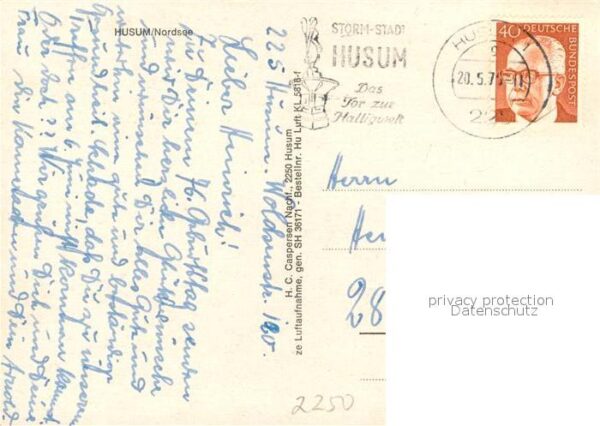 HUSUM/Nordsee
STORM-STADT
HUSUM
Das
Tor zur
Halligwelt
HUSUM 1
20.5.76-11
225
40
DEUTSCHE
BUNDESPOST
225 Husum, Woldsenstr.
Lieber Heinrich!
Zu Deinem 76. Geburtstag senden
wir Dir herzliche Glückwünsche
und wünschen Dir alles Gute und
weiterhin gute und beständige
Gesundheit. Schade, daß Du zu unserem
Treffen am 6. Juni nicht kommen kannst.
Oder doch?? Wir grüßen Dich und Deine
Frau
H. C. Caspersen Nachf., 2250 Husum
ze Luftaufnahme, gen. SH 36171 - Bestellnr. Hu Luft KL 5816-f
Herrn
He
28
2250
privacy protection
Datenschutz